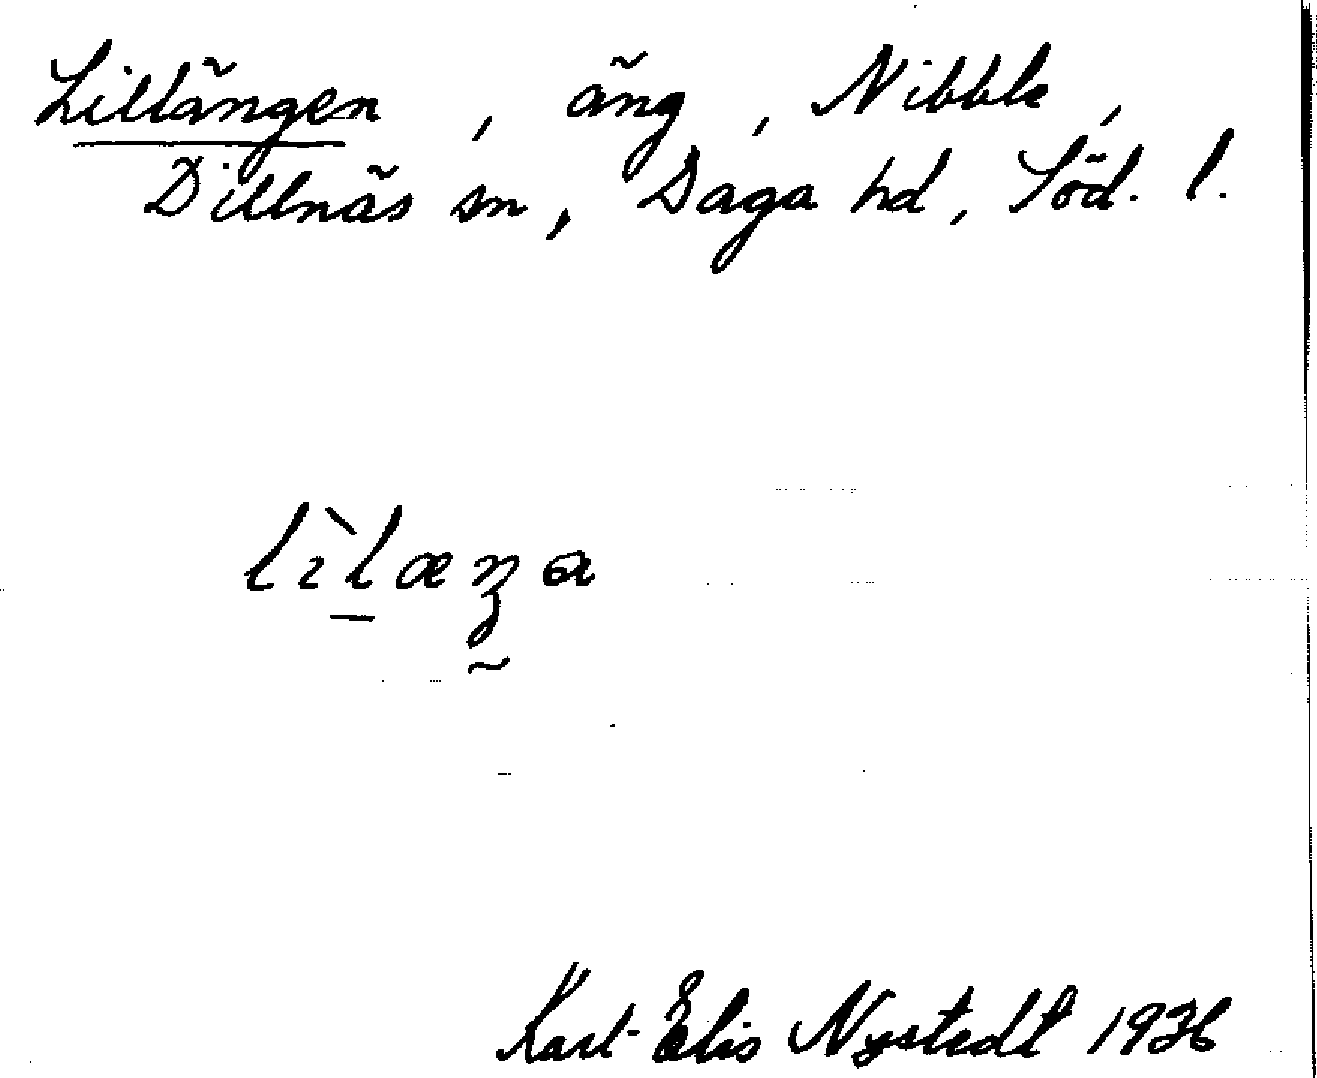 Lillängen, äng, Nibble,
Dillnäs sn, Daga hd, Söd. l.
lìlæŋa
Karl-Elis Nystedt 1936